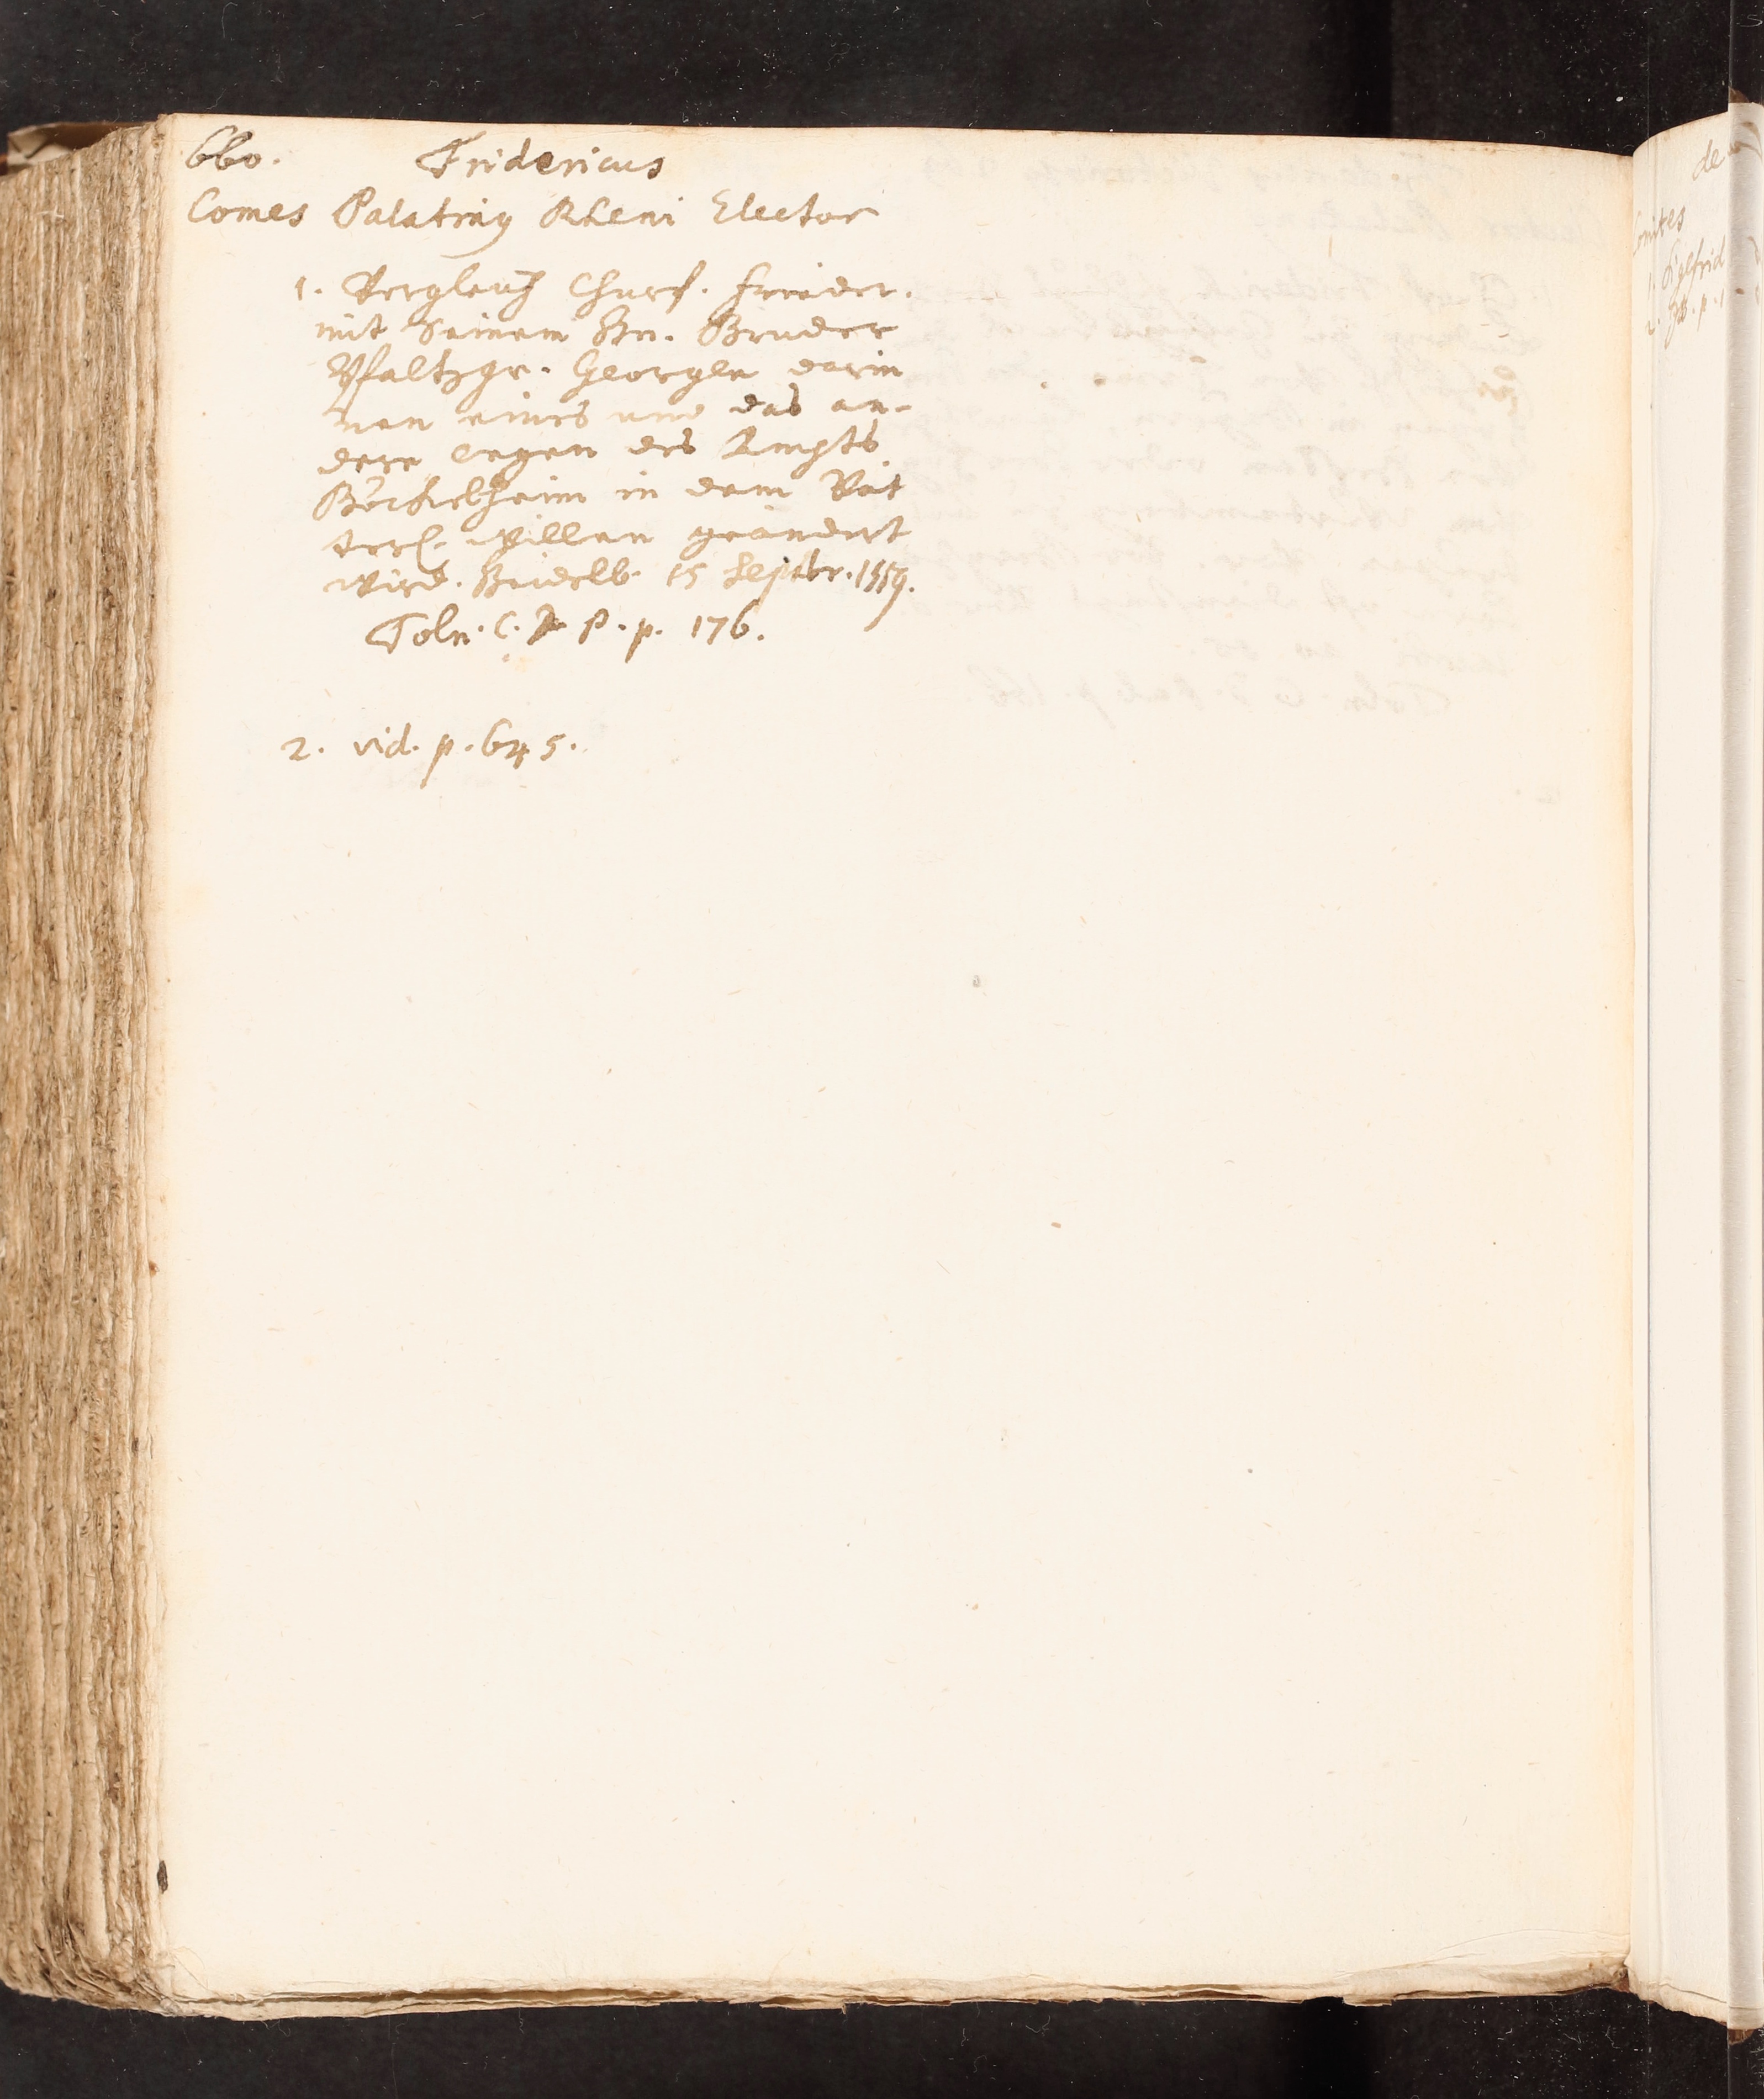 660. Fridericus
Comes Palatinus Rheni Elector
1. Vergleich Churf. Frieder.
mit Seinem Hn. Bruder
Pfaltzgr. Georgen darin
nen eines und das an-
dere wegen des Ampts
Böckelheim in dem Vät
terl. willen geändert
wird. Heidelb. 15 Septbr. 1559.
Toln. C. D P. p. 176.
2. vid. p. 645.
de
Comites
1. Sigfrid
2. p.